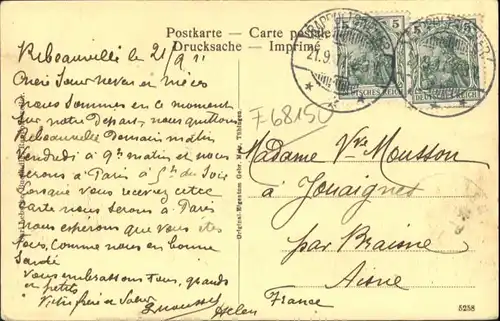 Postkarte — Carte postale
Drucksache — Imprimé
RAPPOLTSWEILER
21.9.11
5
DEUTSCHES REICH
5
DEUTSCHES REICH
Ribeauvillé le 21/9 11
Chère Sœur neveu et nièces
nous sommes en ce moment
sur notre Départ, nous quittons
Ribeauvillé Demain matin
vendredi à 9h matin et nous
serons à Paris à 5h du Soir
Lorsque vous recevrez cette
carte nous serons à Paris
nous esperons que vous êtes
tous, comme nous en bonne
Santé
Vous embrassons Tous, grands
et petits
Votre frère et Sœur
Mousson
Helen
F 68150
Madame Vve Mousson
à Jouaignes
par Braisne
Aisne
France
Original-Eigentum Gebr. Metz, Tübingen.
5258